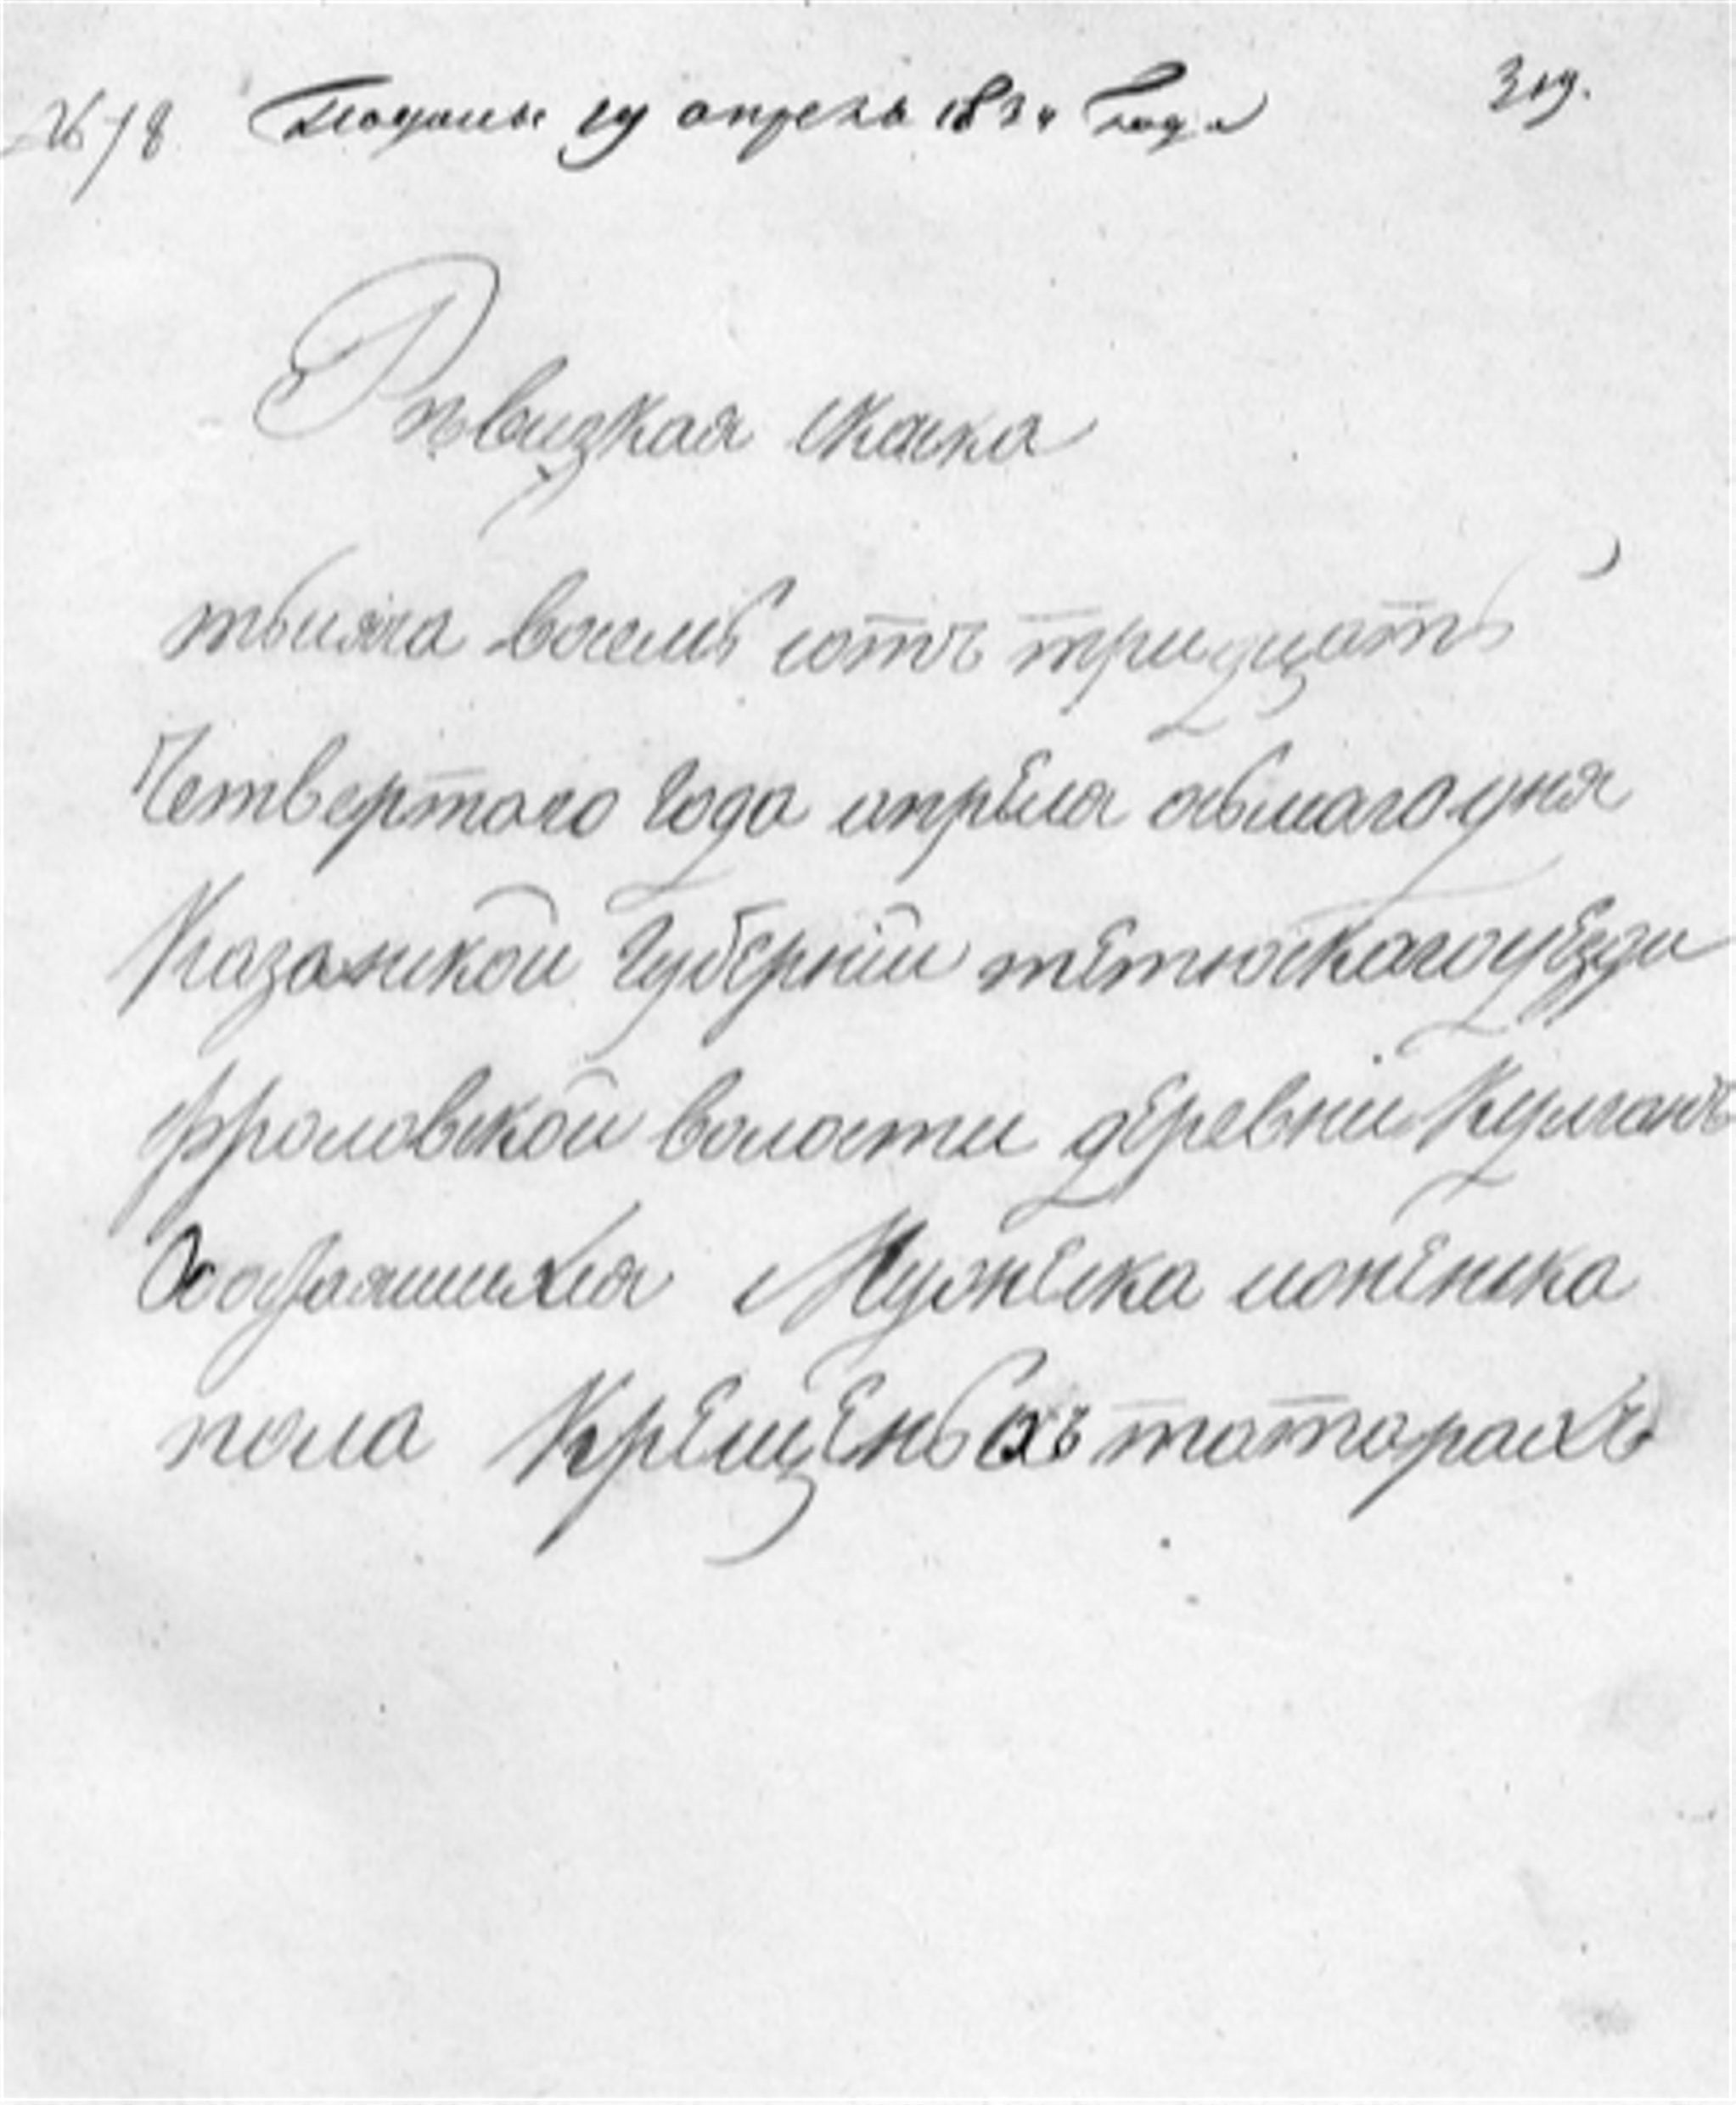 № 78 Подана 19 апреля 1834 года 319.
Ревизкая скаска
тысяча восемь сотъ тридцать
Четвертого года апреля осьмаго дня
Казанской губернии тетюскаго уезда
фроловской волости деревни
Состоящихся Мужеска иженска
пола Крещеныхъ татарахъ